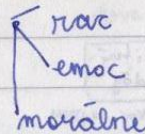 rac
emoc
morálne